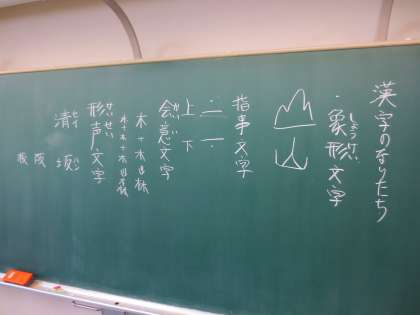 漢字のなりたち
・象形文字
しょうけい
山
指事文字
上 下
会意文字
かいい
木+木→林
木+木+木→森
形声文字
けいせい
清 セイ
坂
阪
板